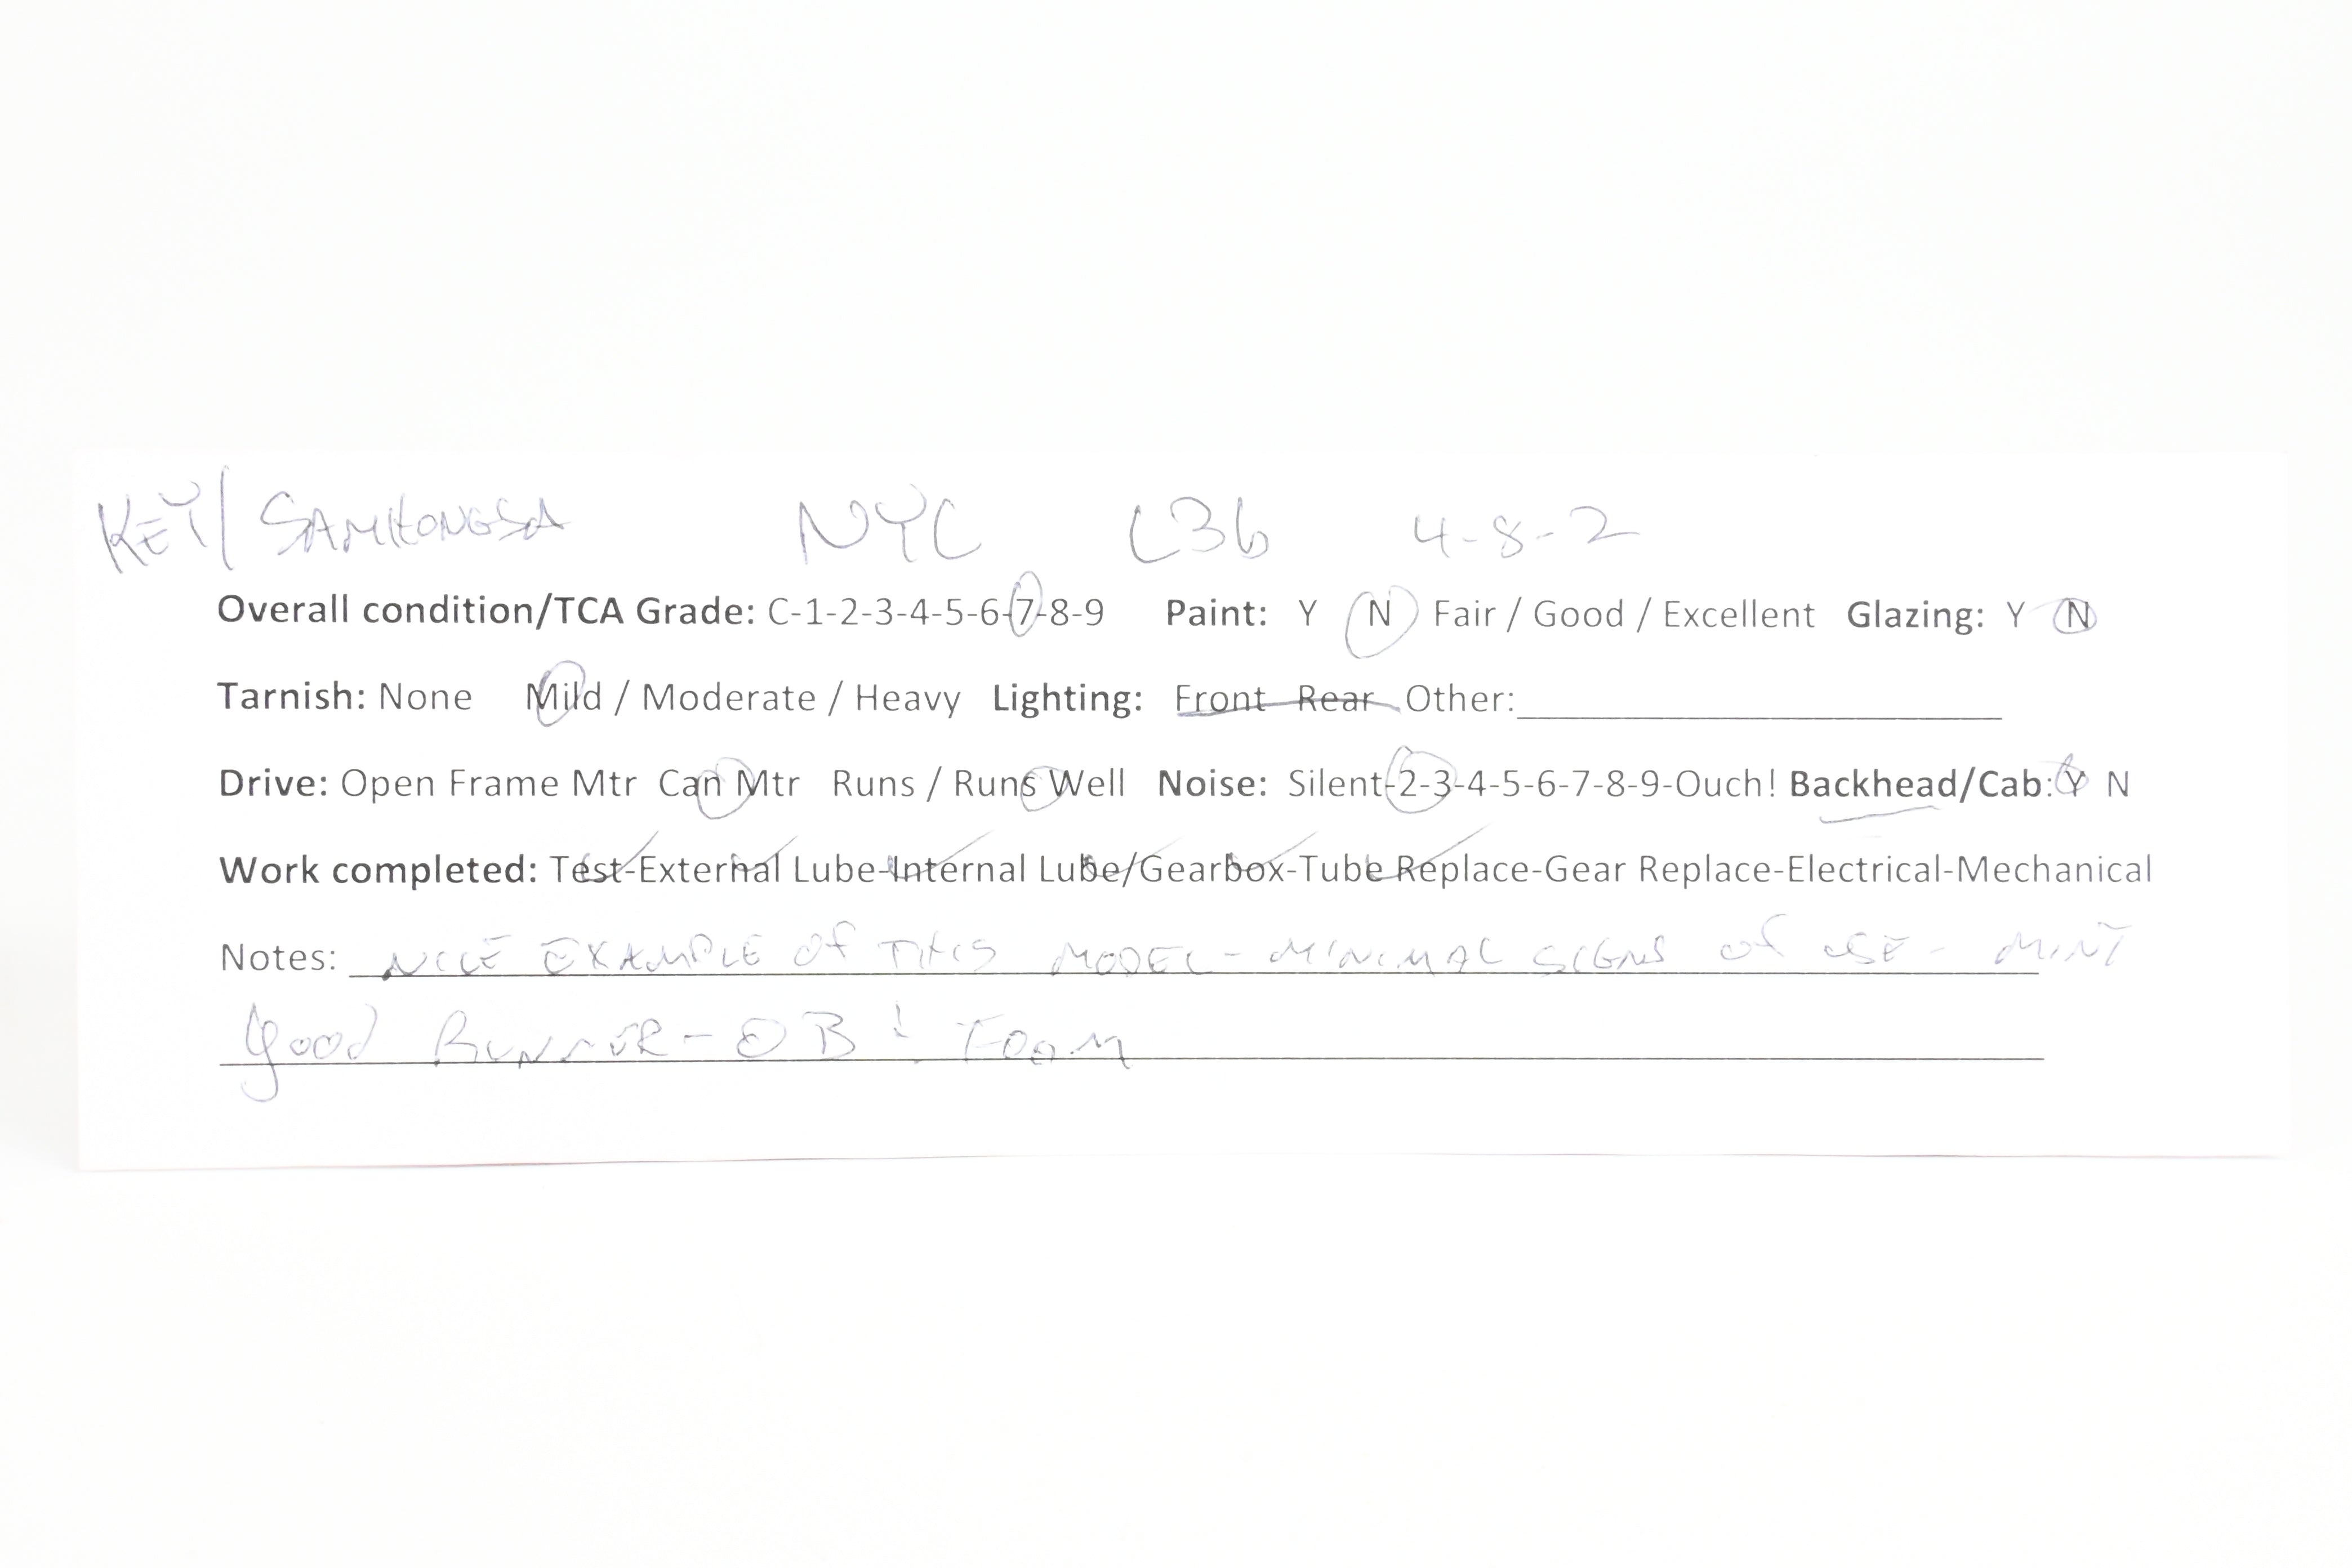 KEY/SAMHONGSA NYC L3b 4-8-2
Overall condition/TCA Grade: C-1-2-3-4-5-6-7-8-9 Paint: Y N Fair / Good / Excellent Glazing: Y N
Tarnish: None Mild / Moderate / Heavy Lighting: Front Rear Other:
Drive: Open Frame Mtr Can Mtr Runs / Runs Well Noise: Silent-2-3-4-5-6-7-8-9-Ouch! Backhead/Cab: Y N
Work completed: Test-External Lube-Internal Lube/Gearbox-Tube Replace-Gear Replace-Electrical-Mechanical
Notes: NICE EXAMPLE OF THIS MODEL - MINIMAL SIGNS OF USE - MINT
good RUNNER - OB & FOAM